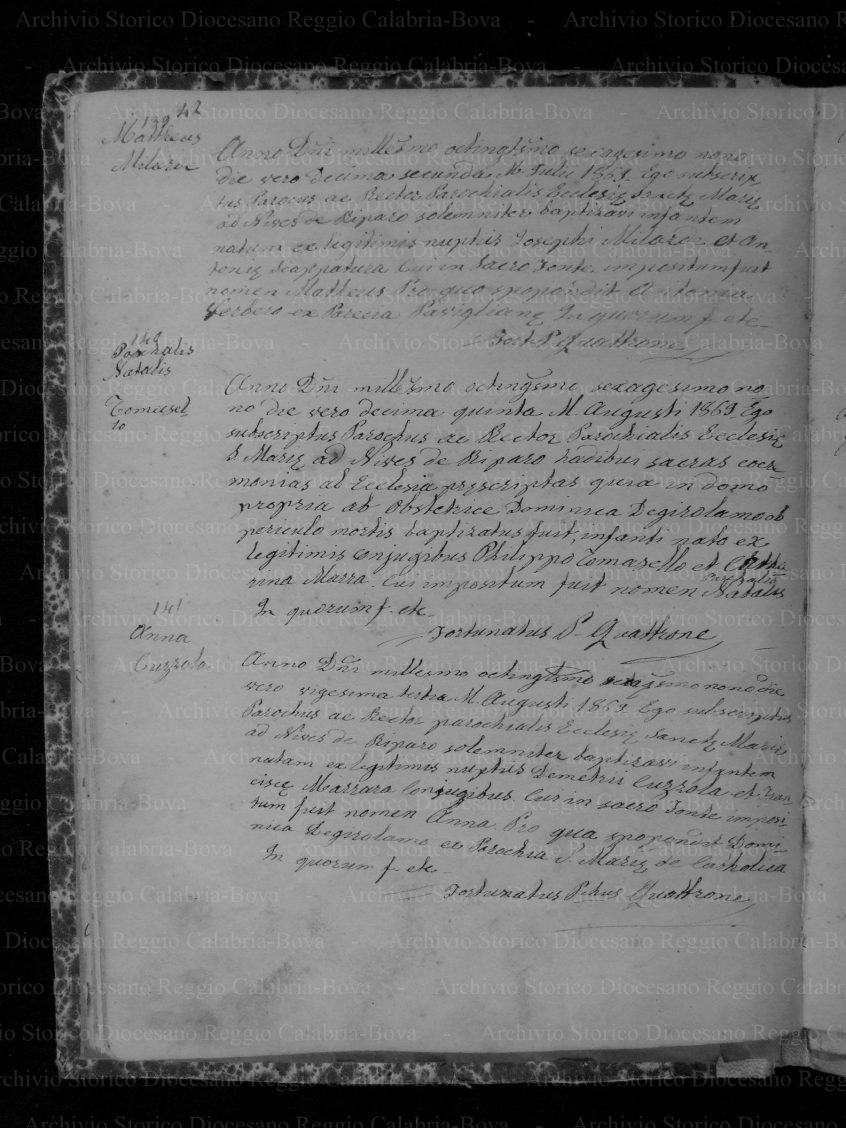 42
139
Mattheus
Milazzo
Anno Dñi millesmo octingtsmo sexagesimo nono
die vero decima secunda M. Julii 1869. Ego subscrip
tus Parocus ac Rector Parochialis Ecclesię Sanctę Marię
ad Nives de Riparo solemniter baptizavi infantem
natum ex legitimis nuptiis Josephi Milazzo et An
tonię Scappatura Cui in Sacro Fonte impositum fuit
nomen Mattheus Pro quo spopondit Antonia
Serbero ex Parecia Pavigliane In quorum f. etc.
Fort. P. Quattrone
140
Paschalis
Natalis
Tomasel
lo
Anno Dñi millesmo octingsmo sexagesimo no
no die vero decima quinta M. Augusti 1869. Ego
subscriptus Parochus ac Rector Parochialis Ecclesię
S Marię ad Nives de Riparo tradibui sacras coere
monias ab Ecclesia pręscriptas quia in domo
propria ab Obstetrice Dominica Degirolamo ob
periculo mortis baptizatus fuit, infanti nato ex
legitimis conjugibus Philippo Tomasello et Cathe
rina Marra. Cui impositum fuit nomen Paschalis Natalis
In quorum f. etc.
Fortunatus P. Quattrone
141
Anna
Cuzzola
Anno Dñi millesmo octingtsmo sexagsmo nono die
vero vigesima tertia M. Augusti 1869. Ego subscriptus
Parochus ac Rector parochialis Ecclesię Sanctę Marię
ad Nives de Riparo solemniter baptizavi infantem
natam ex legitimis nuptiis Demetrii Cuzzola et Fran
ciscę Mazzara Conjugibus Cui in sacro Fonte imposi-
tum fuit nomen Anna. Pro qua spopondit Domi
nica Degirolamo ex Parochia S. Marię de Catholica
In quorum f. etc.
Fortunatus P.chus Quattrone
Archivio Storico Diocesano Reggio Calabria-Bova